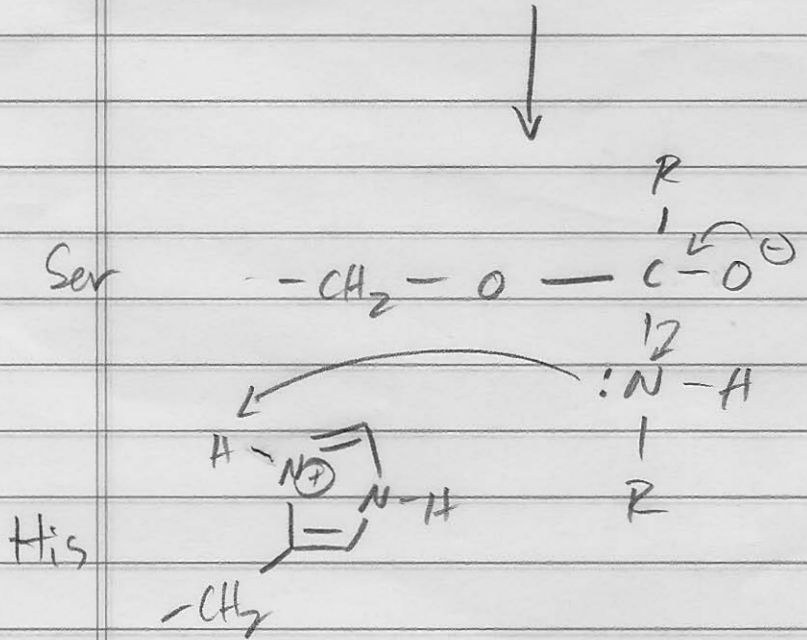 R
Ser -CH2-O-C-O⊖
:N-H
H-N⊕
N-H
R
His
-CH2